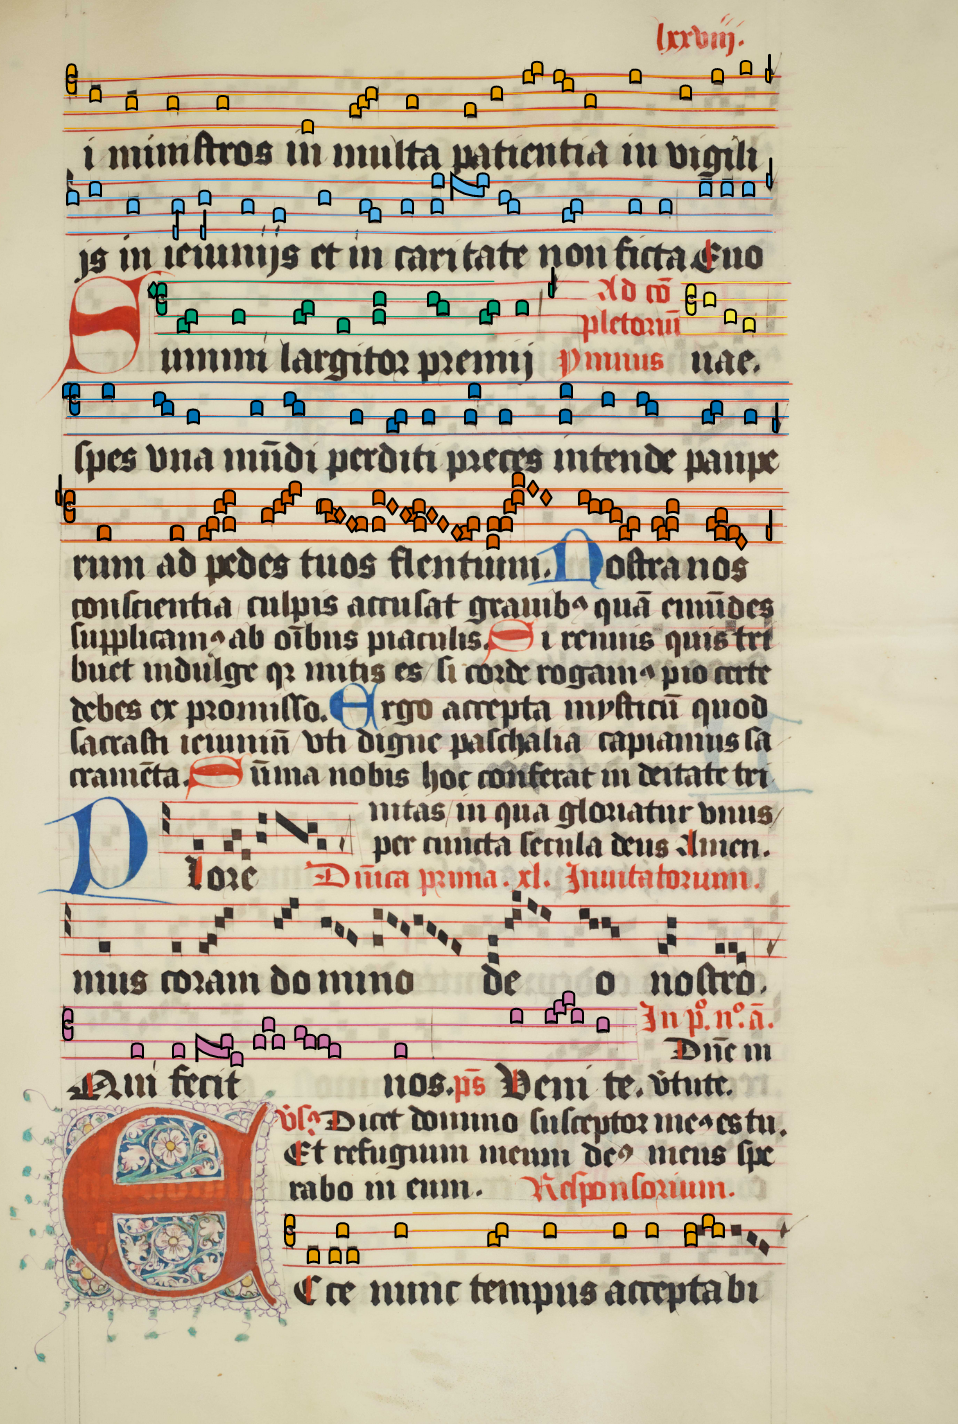 lxxviij.
i ministros in multa patientia in vigili
js in ieiunijs et in caritate non ficta Euo
Ad cō
pletoriū
Summi largitor premij Primus uae.
spes vna mūdi perditi preces intende paupe
rum ad pedes tuos flentium. Nostra nos
conscientia culpis accusat grauibꝰ quā emūdes
supplicamꝰ ab oībus piaculis. Si remis quis tri
buet indulge qr mitis es si corde rogamꝰ pio certe
debes ex promisso. Ergo accepta mysticū quod
sacrasti ieiuniū vti digne paschalia capiamus sa
cramēta. Sūma nobis hoc conferat in deitate tri
nitas in qua gloriatur vnus
per cuncta secula deus Amen.
Plore Dn̄ica prima. xl. Inuitatorium.
mus coram domino deo nostro.
In p̊. n̊. ā.
Dn̄e in
Qui fecit nos. p̄s Venite. v̄tute.
v̄sꝰ. Dicet domino susceptor meꝰ es tu.
Et refugium meum deꝰ meus spe
rabo in eum. Responsorium.
Ecce nunc tempus acceptabi